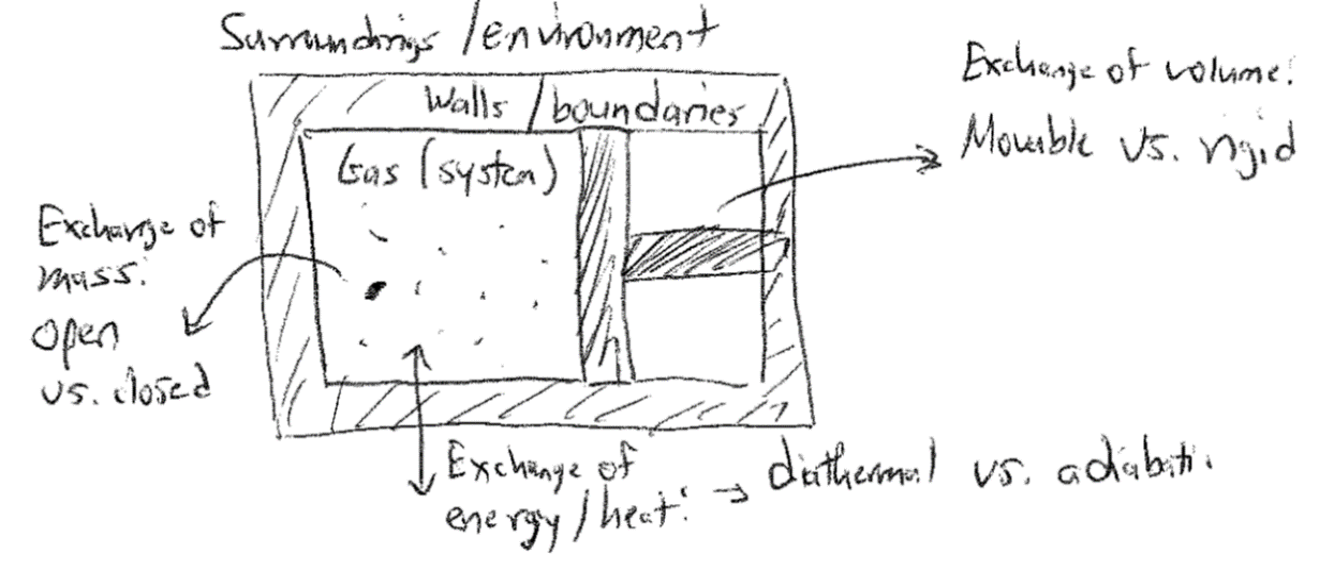 Surroundings / environment
Walls / boundaries
Gas (system)
Exchange of volume:
Movable vs. rigid
Exchange of
mass:
open
vs. closed
Exchange of
energy / heat: → diathermal vs. adiabati.